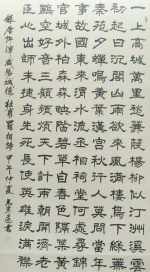 一上高城萬里愁蒹葭楊柳似汀洲溪雲
初起日沉閣山雨欲來風滿樓鳥下綠蕪
秦苑夕蟬鳴黃葉漢宮秋行人莫問當年
事故國東來渭水流丞相祠堂何處尋錦
官城外柏森森映階碧草自春色隔葉黃
鸝空好音三顧頻煩天下計兩朝開濟老
臣心出師未捷身先死長使英雄淚滿襟
錄唐許渾咸陽城樓杜甫蜀相詩甲午仲夏書